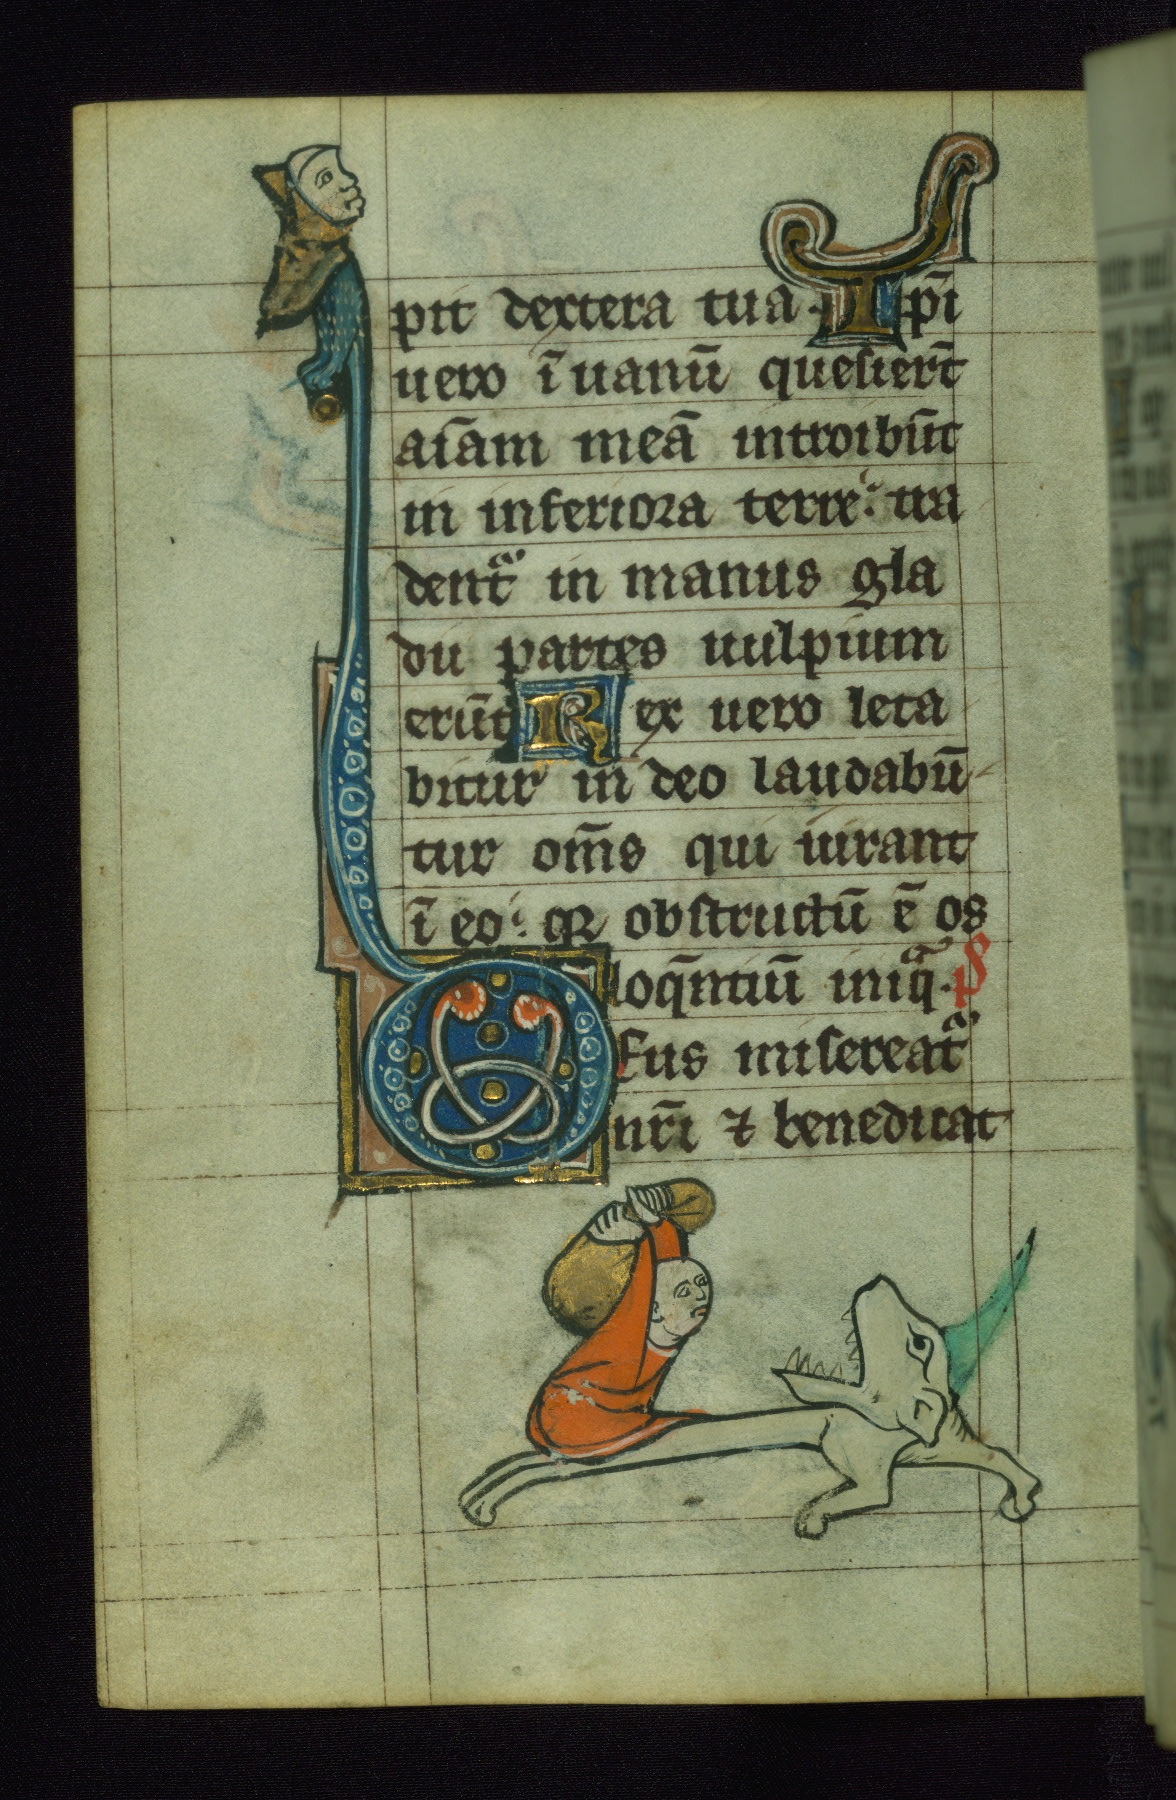 pit dextera tua · Ipi̅
uero i̅ uanu̅ quesiert̅
ai̅am mea̅ introibu̅t
in inferiora terre: tra
dent᷑ in manus gla
dii partes uulpium
eru̅t Rex uero leta
bitur in deo laudabu̅
tur om̅s qui iurant
i̅ eo: qꝛ obstructu̅ e̅ os
loq̅ntiu̅ iniq̅ · p̅s
Deus misereat᷑
nr̅i ⁊ benedicat